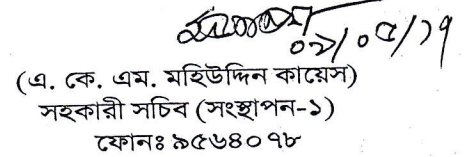 ০২/০৫/১৭
(এ. কে. এম. মহিউদ্দিন কায়েস)
সহকারী সচিব (সংস্থাপন-১)
ফোনঃ ৯৫৬৪০৭৮